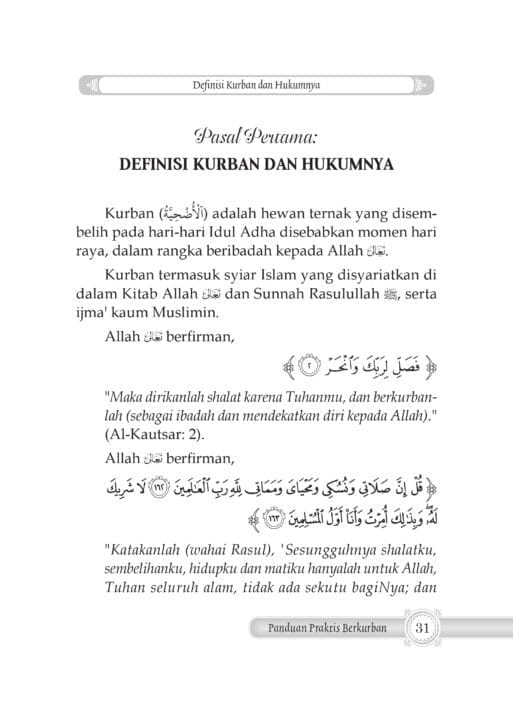 Definisi Kurban dan Hukumnya
Pasal Pertama:
DEFINISI KURBAN DAN HUKUMNYA
Kurban (اَلْأُضْحِيَّةُ) adalah hewan ternak yang disem-
belih pada hari-hari Idul Adha disebabkan momen hari
raya, dalam rangka beribadah kepada Allah تَعَالَى.
Kurban termasuk syiar Islam yang disyariatkan di
dalam Kitab Allah تَعَالَى dan Sunnah Rasulullah ﷺ, serta
ijma' kaum Muslimin.
Allah تَعَالَى berfirman,
﴿ فَصَلِّ لِرَبِّكَ وَٱنْحَرْ ۝٢ ﴾
"Maka dirikanlah shalat karena Tuhanmu, dan berkurban-
lah (sebagai ibadah dan mendekatkan diri kepada Allah)."
(Al-Kautsar: 2).
Allah تَعَالَى berfirman,
﴿ قُلْ إِنَّ صَلَاتِى وَنُسُكِى وَمَحْيَاىَ وَمَمَاتِى لِلَّهِ رَبِّ ٱلْعَـٰلَمِينَ ۝١٦٢ لَا شَرِيكَ
لَهُۥ ۖ وَبِذَٰلِكَ أُمِرْتُ وَأَنَا۠ أَوَّلُ ٱلْمُسْلِمِينَ ۝١٦٣ ﴾
"Katakanlah (wahai Rasul), 'Sesungguhnya shalatku,
sembelihanku, hidupku dan matiku hanyalah untuk Allah,
Tuhan seluruh alam, tidak ada sekutu bagiNya; dan
Panduan Praktis Berkurban 31